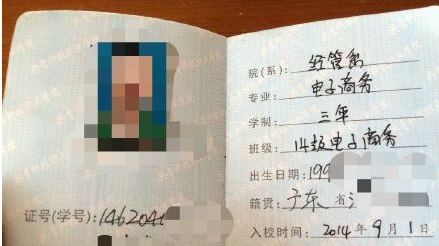 证号(学号): 1462040
院(系): 经管系
专业: 电子商务
学制: 三年
班级: 14级电子商务
出生日期: 199
籍贯: 广东 省
入校时间: 2014 年 9 月 1 日